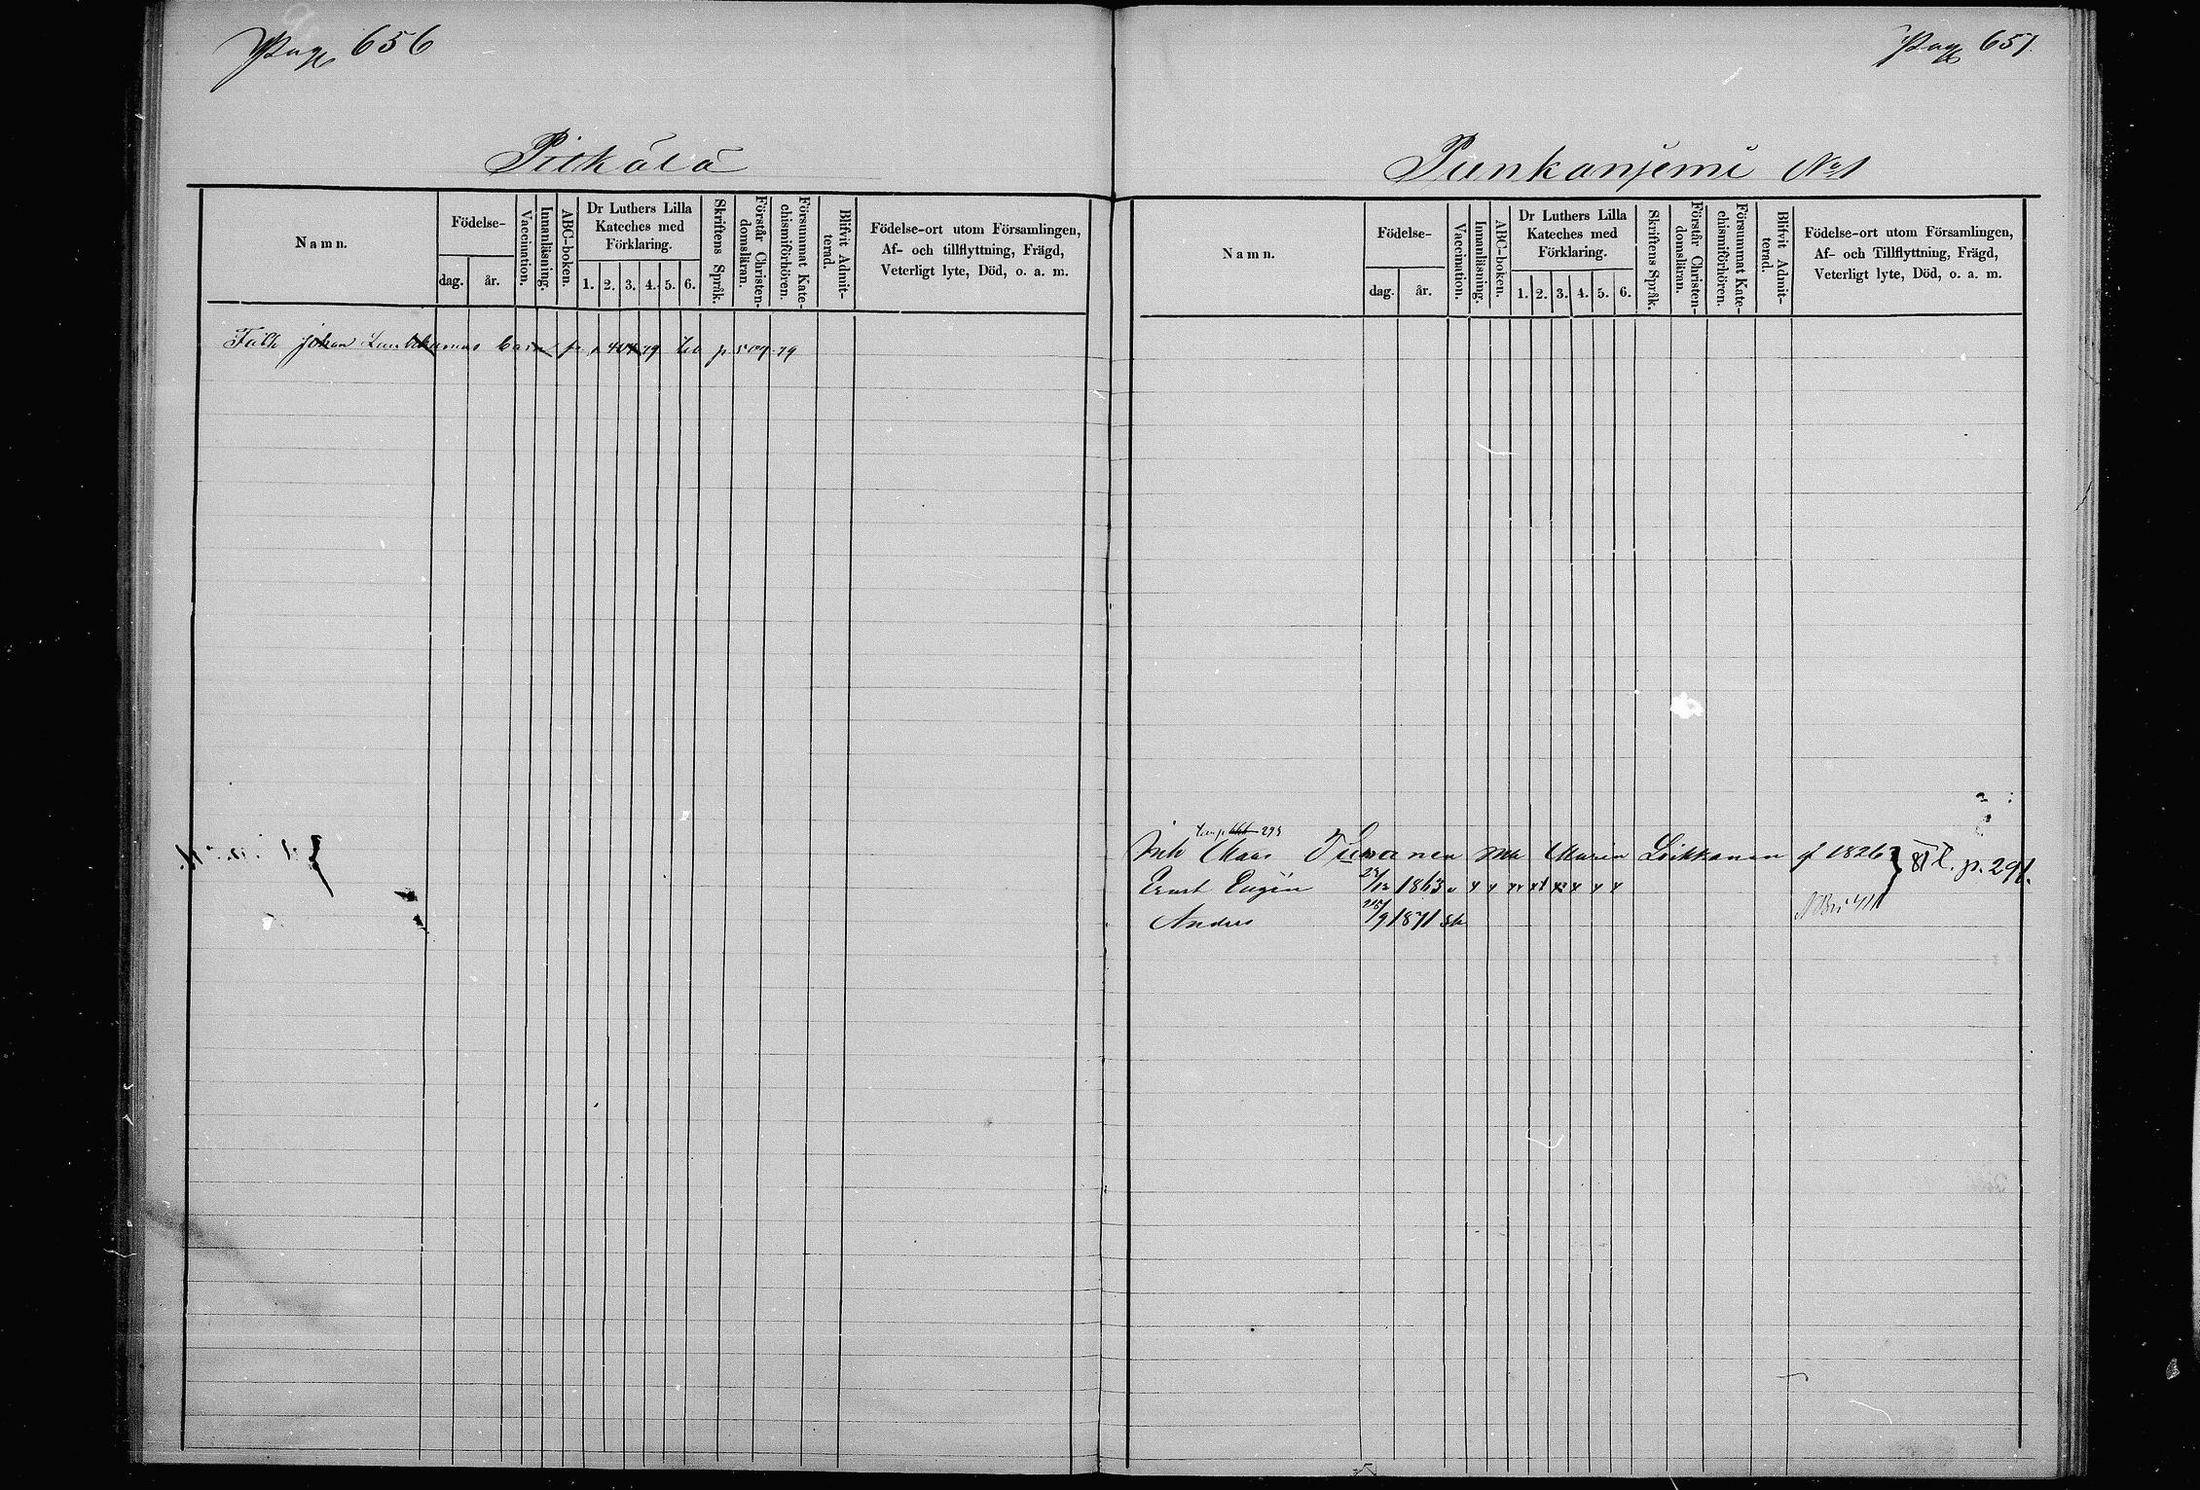 Pag 656
Pitkälä
Namn.
Födelse-
dag.
år.
Vaccination.
Innanläsning.
ABC-boken.
Dr Luthers Lilla
Kateches med
Förklaring.
1. 2. 3. 4. 5. 6.
Skriftens Språk.
Förstår Christen-
domsläran.
Försummat Kate-
chismiförhören.
Blifvit Admit-
terad.
Födelse-ort utom Församlingen,
Af- och tillflyttning, Frägd,
Veterligt lyte, Död, o. a. m.
Johan barn p 507 79
Pag 657
Punkanjemi No 1
Namn.
Födelse-
dag.
år.
Vaccination.
Innanläsning.
ABC-boken.
Dr Luthers Lilla
Kateches med
Förklaring.
1. 2. 3. 4. 5. 6.
Skriftens Språk.
Förstår Christen-
domsläran.
Försummat Kate-
chismiförhören.
Blifvit Admit-
terad.
Födelse-ort utom Församlingen,
Af- och Tillflyttning, Frägd,
Veterligt lyte, Död, o. a. m.
293
Inh Maria Loikkanen f 1826 p. 291.
Ernst 1863
Anders 1871